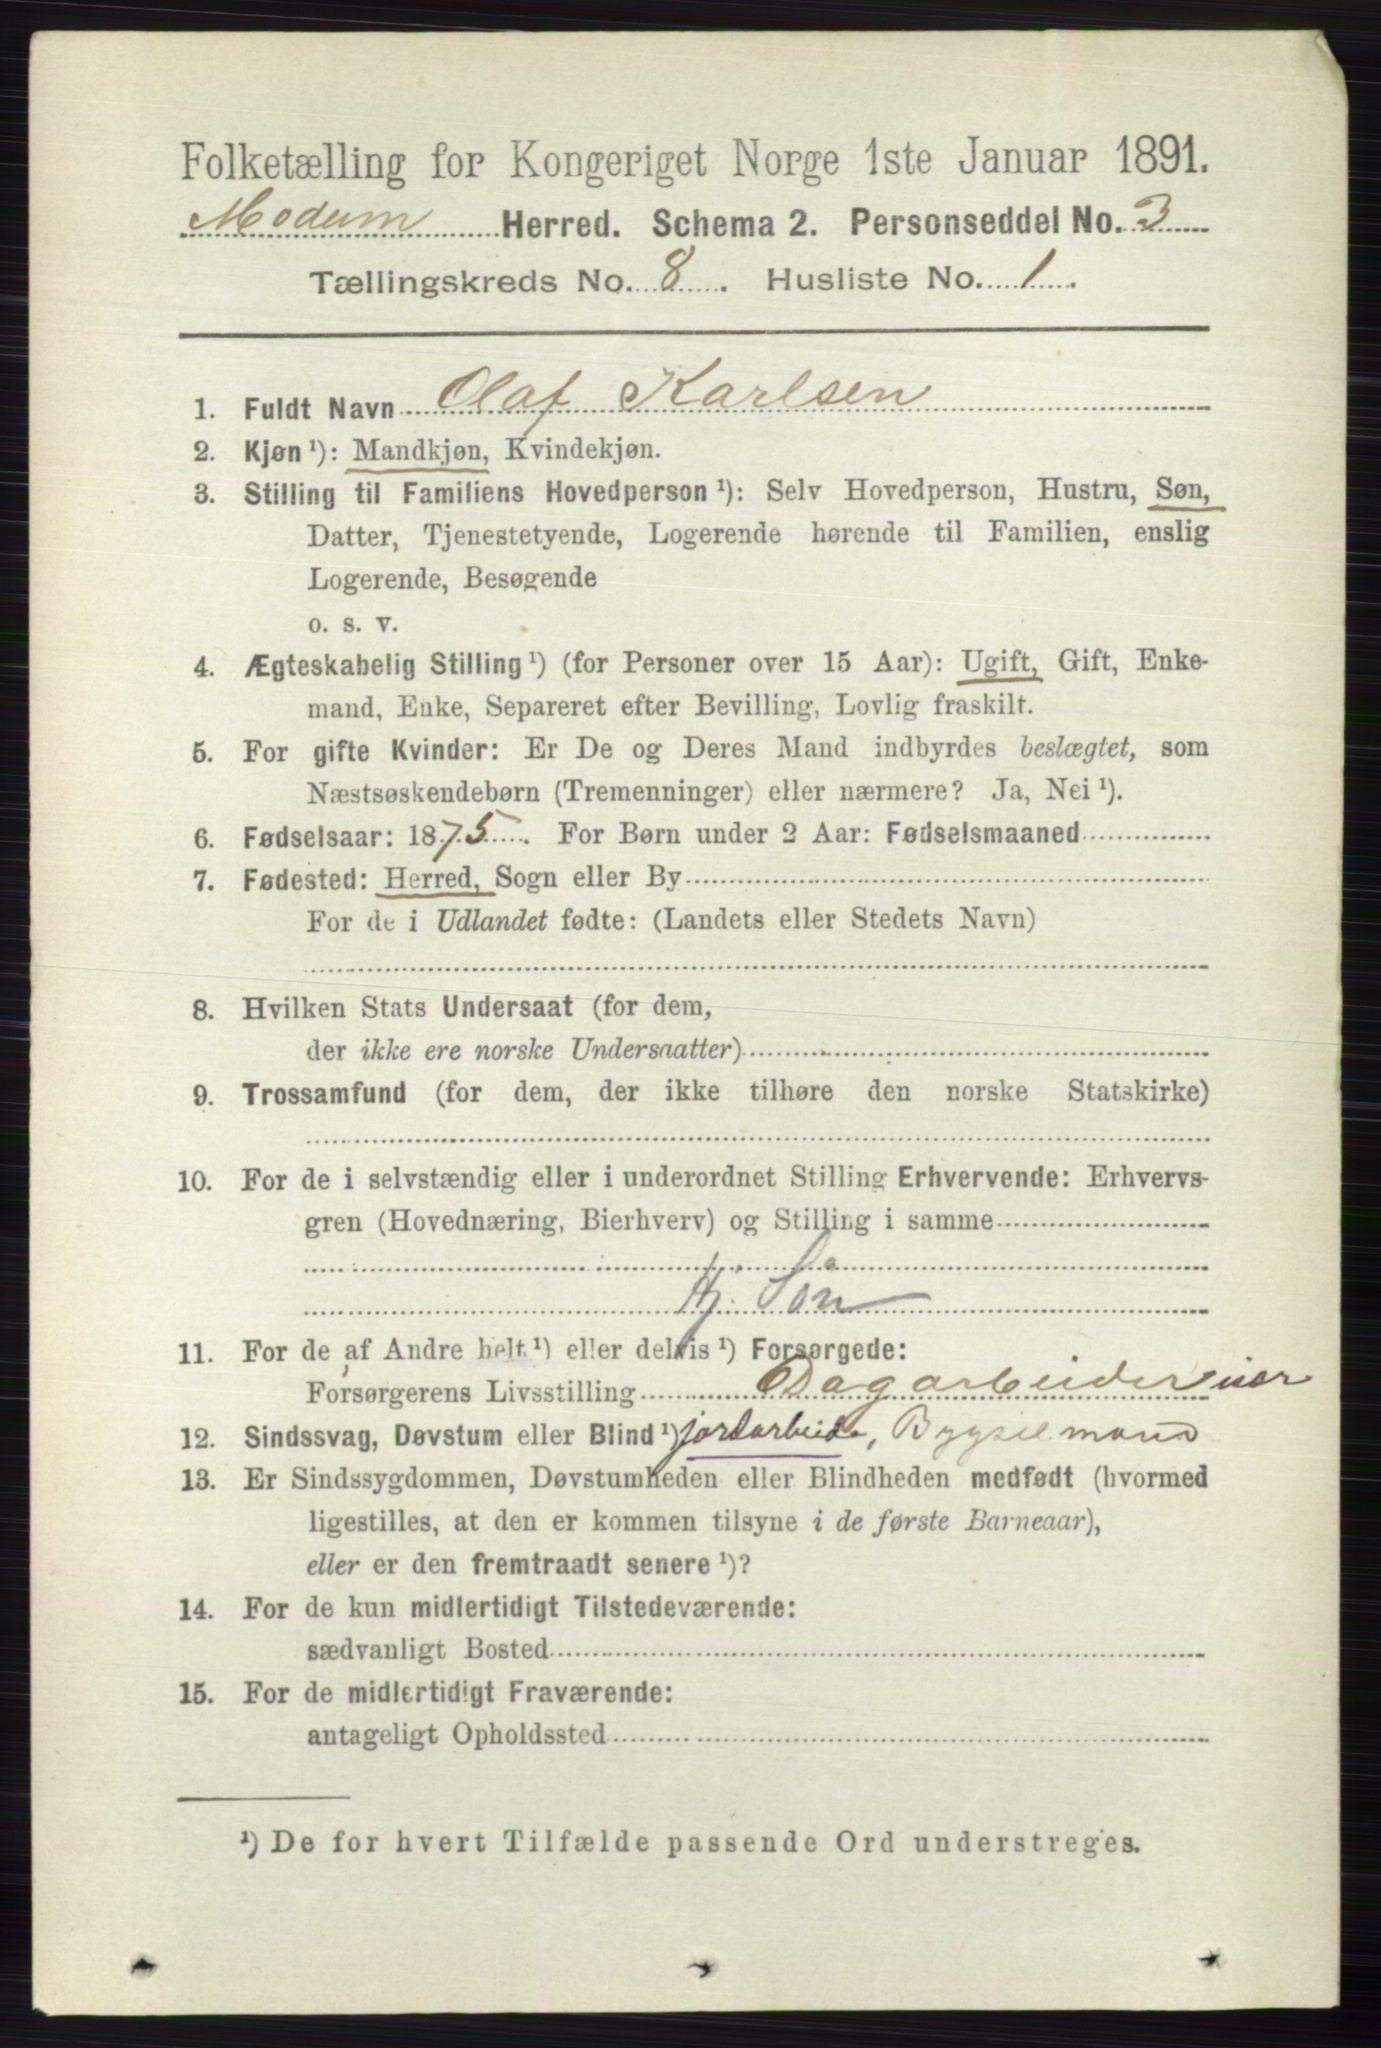 Folketælling for Kongeriget Norge 1ste Januar 1891.
Modum Herred. Schema 2. Personseddel No. 3
Tællingskreds No. 8. Husliste No. 1.
1. Fuldt Navn Olaf Karlsen
2. Kjøn ¹): Mandkjøn, Kvindekjøn.
3. Stilling til Familiens Hovedperson ¹): Selv Hovedperson, Hustru, Søn,
Datter, Tjenestetyende, Logerende hørende til Familien, enslig
Logerende, Besøgende
o. s. v.
4. Ægteskabelig Stilling ¹) (for Personer over 15 Aar): Ugift, Gift, Enke-
mand, Enke, Separeret efter Bevilling, Lovlig fraskilt.
5. For gifte Kvinder: Er De og Deres Mand indbyrdes beslægtet, som
Næstsøskendebørn (Tremenninger) eller nærmere? Ja, Nei ¹).
6. Fødselsaar: 1875. For Børn under 2 Aar: Fødselsmaaned
7. Fødested: Herred, Sogn eller By
For de i Udlandet fødte: (Landets eller Stedets Navn)
8. Hvilken Stats Undersaat (for dem,
der ikke ere norske Undersaatter)
9. Trossamfund (for dem, der ikke tilhøre den norske Statskirke)
10. For de i selvstændig eller i underordnet Stilling Erhvervende: Erhvervs-
gren (Hovednæring, Bierhverv) og Stilling i samme
Hj. Søn
11. For de af Andre helt ¹) eller delvis ¹) Forsørgede:
Forsørgerens Livsstilling Dagarbeider
12. Sindssvag, Døvstum eller Blind ¹) jordarbeide, Bygselmand
13. Er Sindssygdommen, Døvstumheden eller Blindheden medfødt (hvormed
ligestilles, at den er kommen tilsyne i de første Barneaar),
eller er den fremtraadt senere ¹)?
14. For de kun midlertidigt Tilstedeværende:
sædvanligt Bosted
15. For de midlertidigt Fraværende:
antageligt Opholdssted
¹) De for hvert Tilfælde passende Ord understreges.